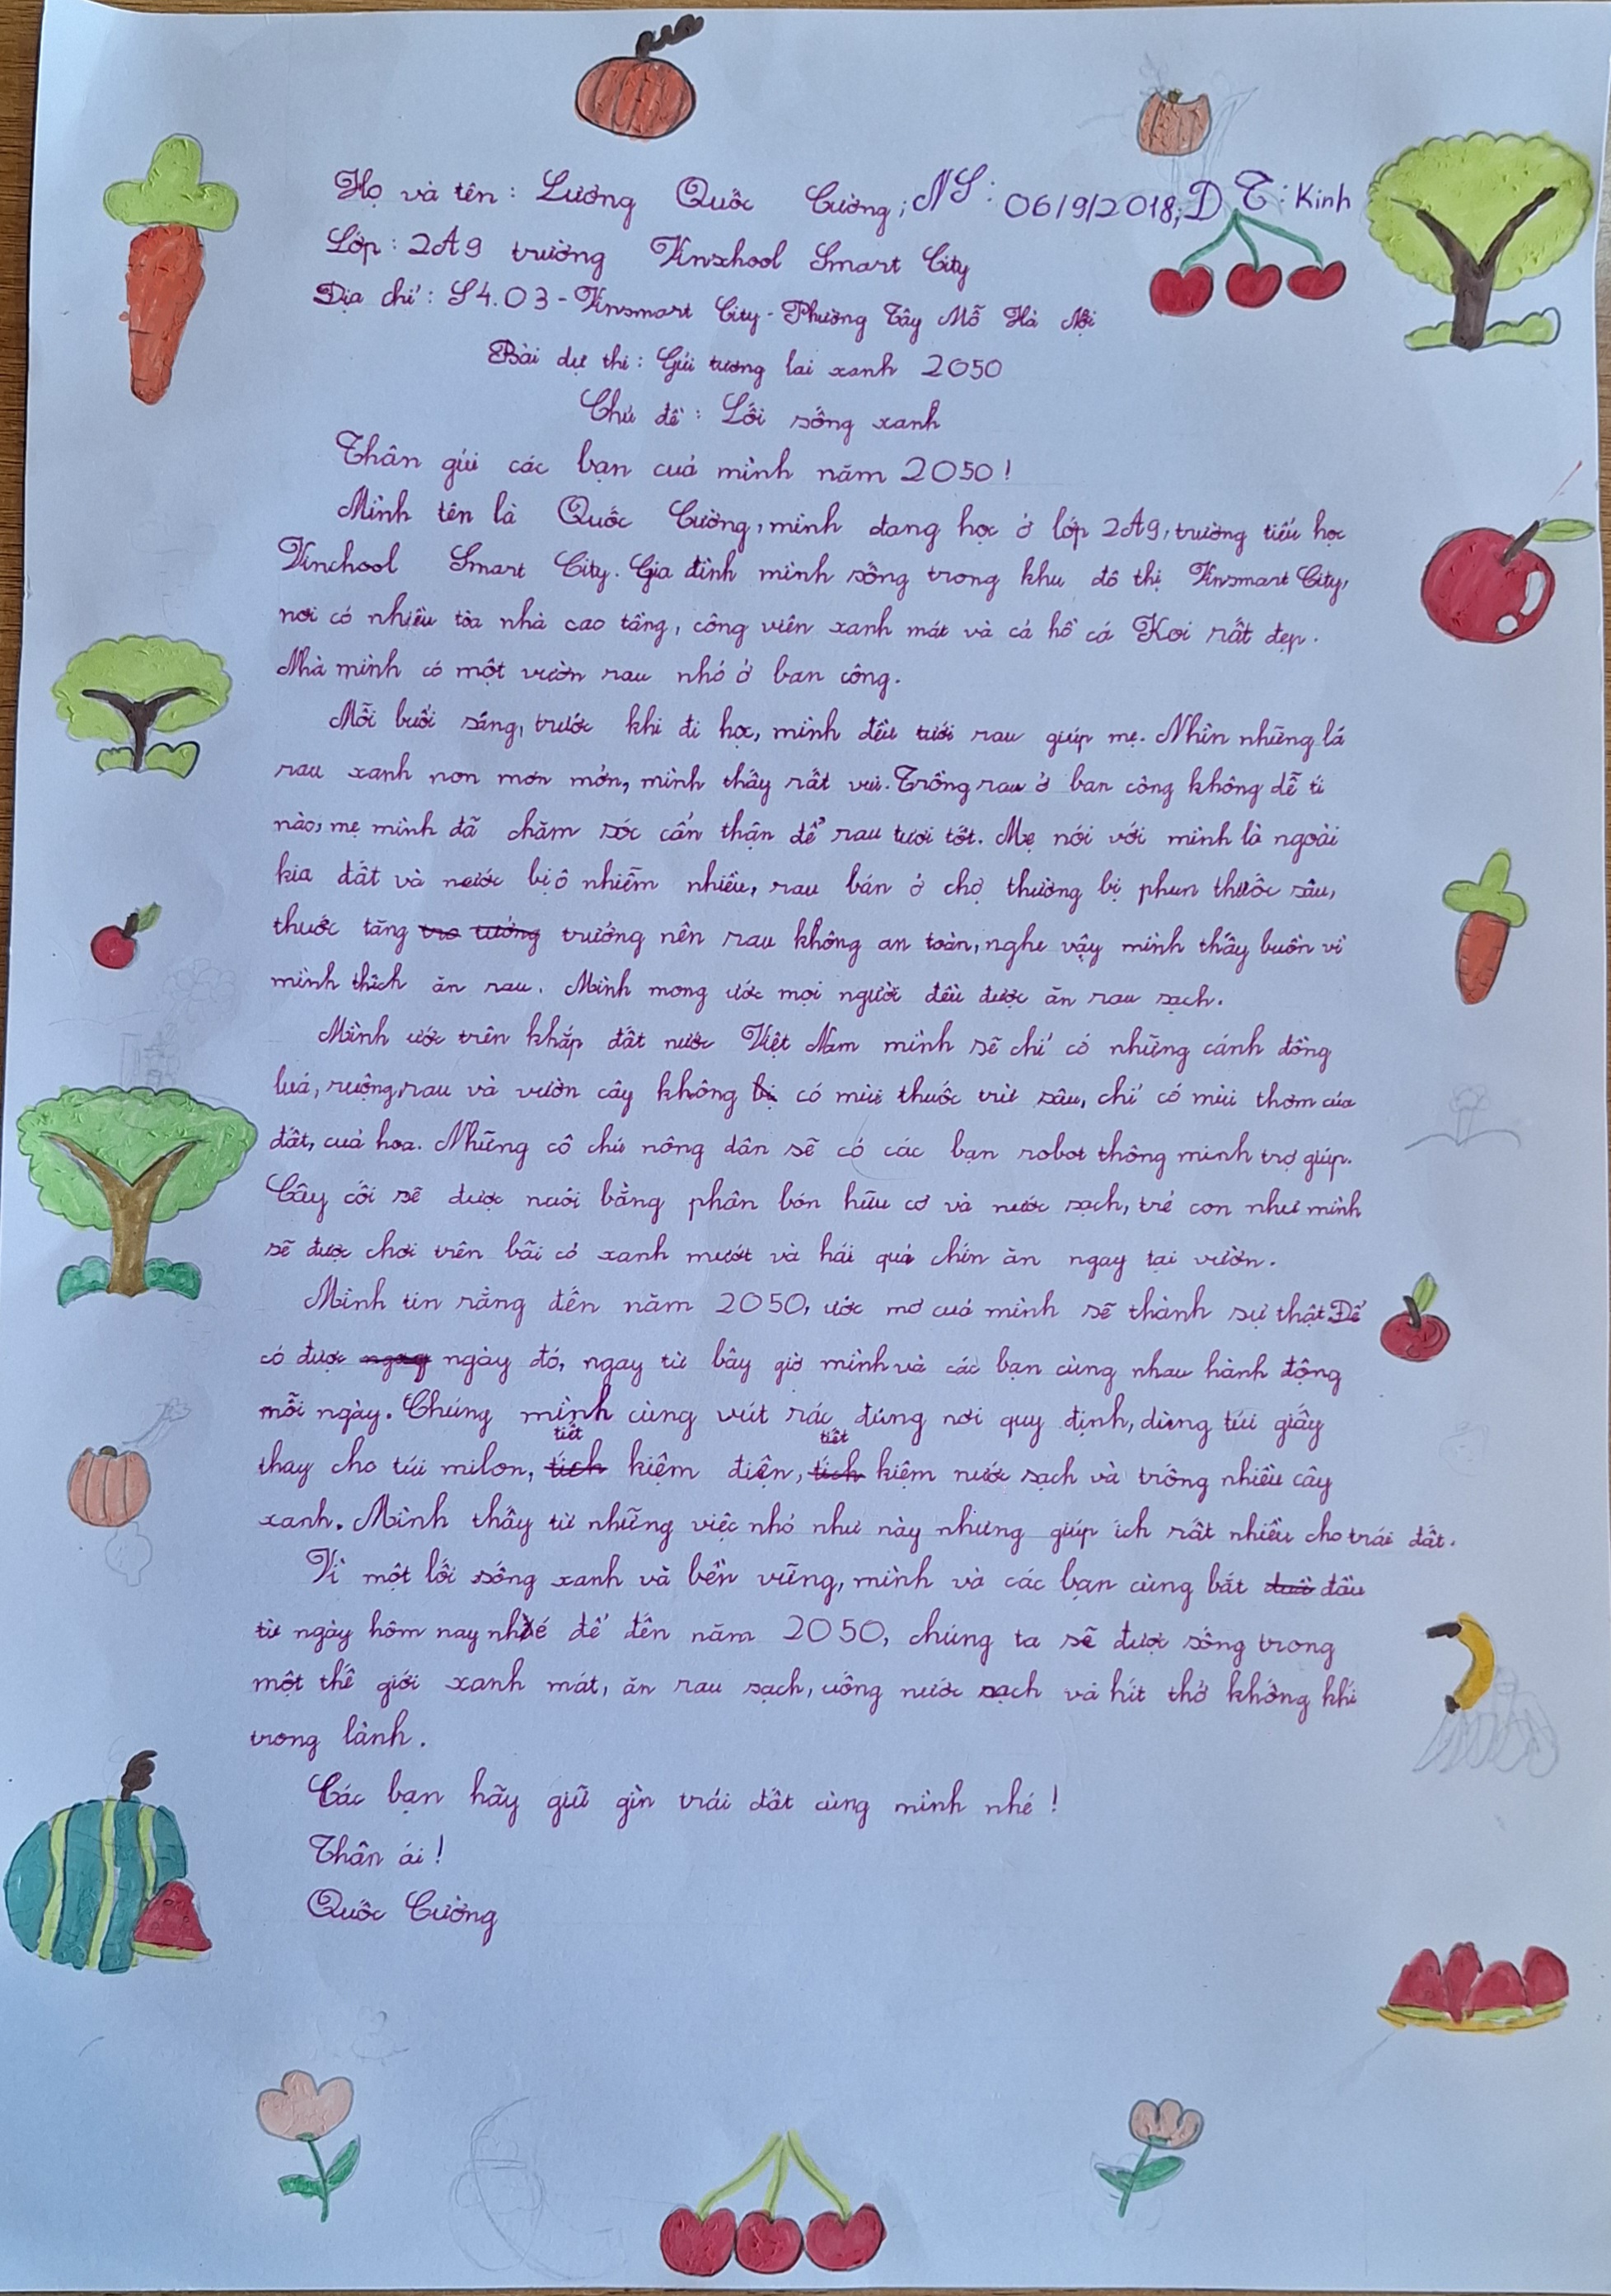 Họ và tên: Lương Quốc Cường; NS: 06/9/2018; DT: Kinh
Lớp: 2A9 trường Vinshool Smart City
Địa chỉ: S4.03 - Vinsmart City - Phường Tây Mỗ Hà Nội
Bài dự thi: Gửi tương lai xanh 2050
Chủ đề: Lối sống xanh
Thân gửi các bạn của mình năm 2050!
Mình tên là Quốc Cường, mình đang học ở lớp 2A9, trường tiểu học
Vinchool Smart City. Gia đình mình sống trong khu đô thị Vinsmart City,
nơi có nhiều tòa nhà cao tầng, công viên xanh mát và cả hồ cá Koi rất đẹp.
Nhà mình có một vườn rau nhỏ ở ban công.
Mỗi buổi sáng, trước khi đi học, mình đều tưới rau giúp mẹ. Nhìn những lá
rau xanh non mơn mởn, mình thấy rất vui. Trồng rau ở ban công không dễ tí
nào, mẹ mình đã chăm sóc cẩn thận để rau tươi tốt. Mẹ nói với mình là ngoài
kia đất và nước bị ô nhiễm nhiều, rau bán ở chợ thường bị phun thuốc sâu,
thuốc tăng tro tưởng trưởng nên rau không an toàn, nghe vậy mình thấy buồn vì
mình thích ăn rau. Mình mong ước mọi người đều được ăn rau sạch.
Mình ước trên khắp đất nước Việt Nam mình sẽ chỉ có những cánh đồng
lúa, ruộng rau và vườn cây không bị có mùi thuốc trừ sâu, chỉ có mùi thơm của
đất, của hoa. Những cô chú nông dân sẽ có các bạn robot thông minh trợ giúp.
Cây cối sẽ được nuôi bằng phân bón hữu cơ và nước sạch, trẻ con như mình
sẽ được chơi trên bãi cỏ xanh mướt và hái quả chín ăn ngay tại vườn.
Mình tin rằng đến năm 2050, ước mơ của mình sẽ thành sự thật. Để
có được ngay ngày đó, ngay từ bây giờ mình và các bạn cùng nhau hành động
mỗi ngày. Chúng mình cùng vứt rác đúng nơi quy định, dùng túi giấy
tiết tiết
thay cho túi milon, tích kiệm điện, tích kiệm nước sạch và trồng nhiều cây
xanh. Mình thấy từ những việc nhỏ như này nhưng giúp ích rất nhiều cho trái đất.
Vì một lối sống xanh và bền vững, mình và các bạn cùng bắt đầu
từ ngày hôm nay nhé để đến năm 2050, chúng ta sẽ được sống trong
một thế giới xanh mát, ăn rau sạch, uống nước sạch và hít thở không khí
trong lành.
Các bạn hãy giữ gìn trái đất cùng mình nhé!
Thân ái!
Quốc Cường